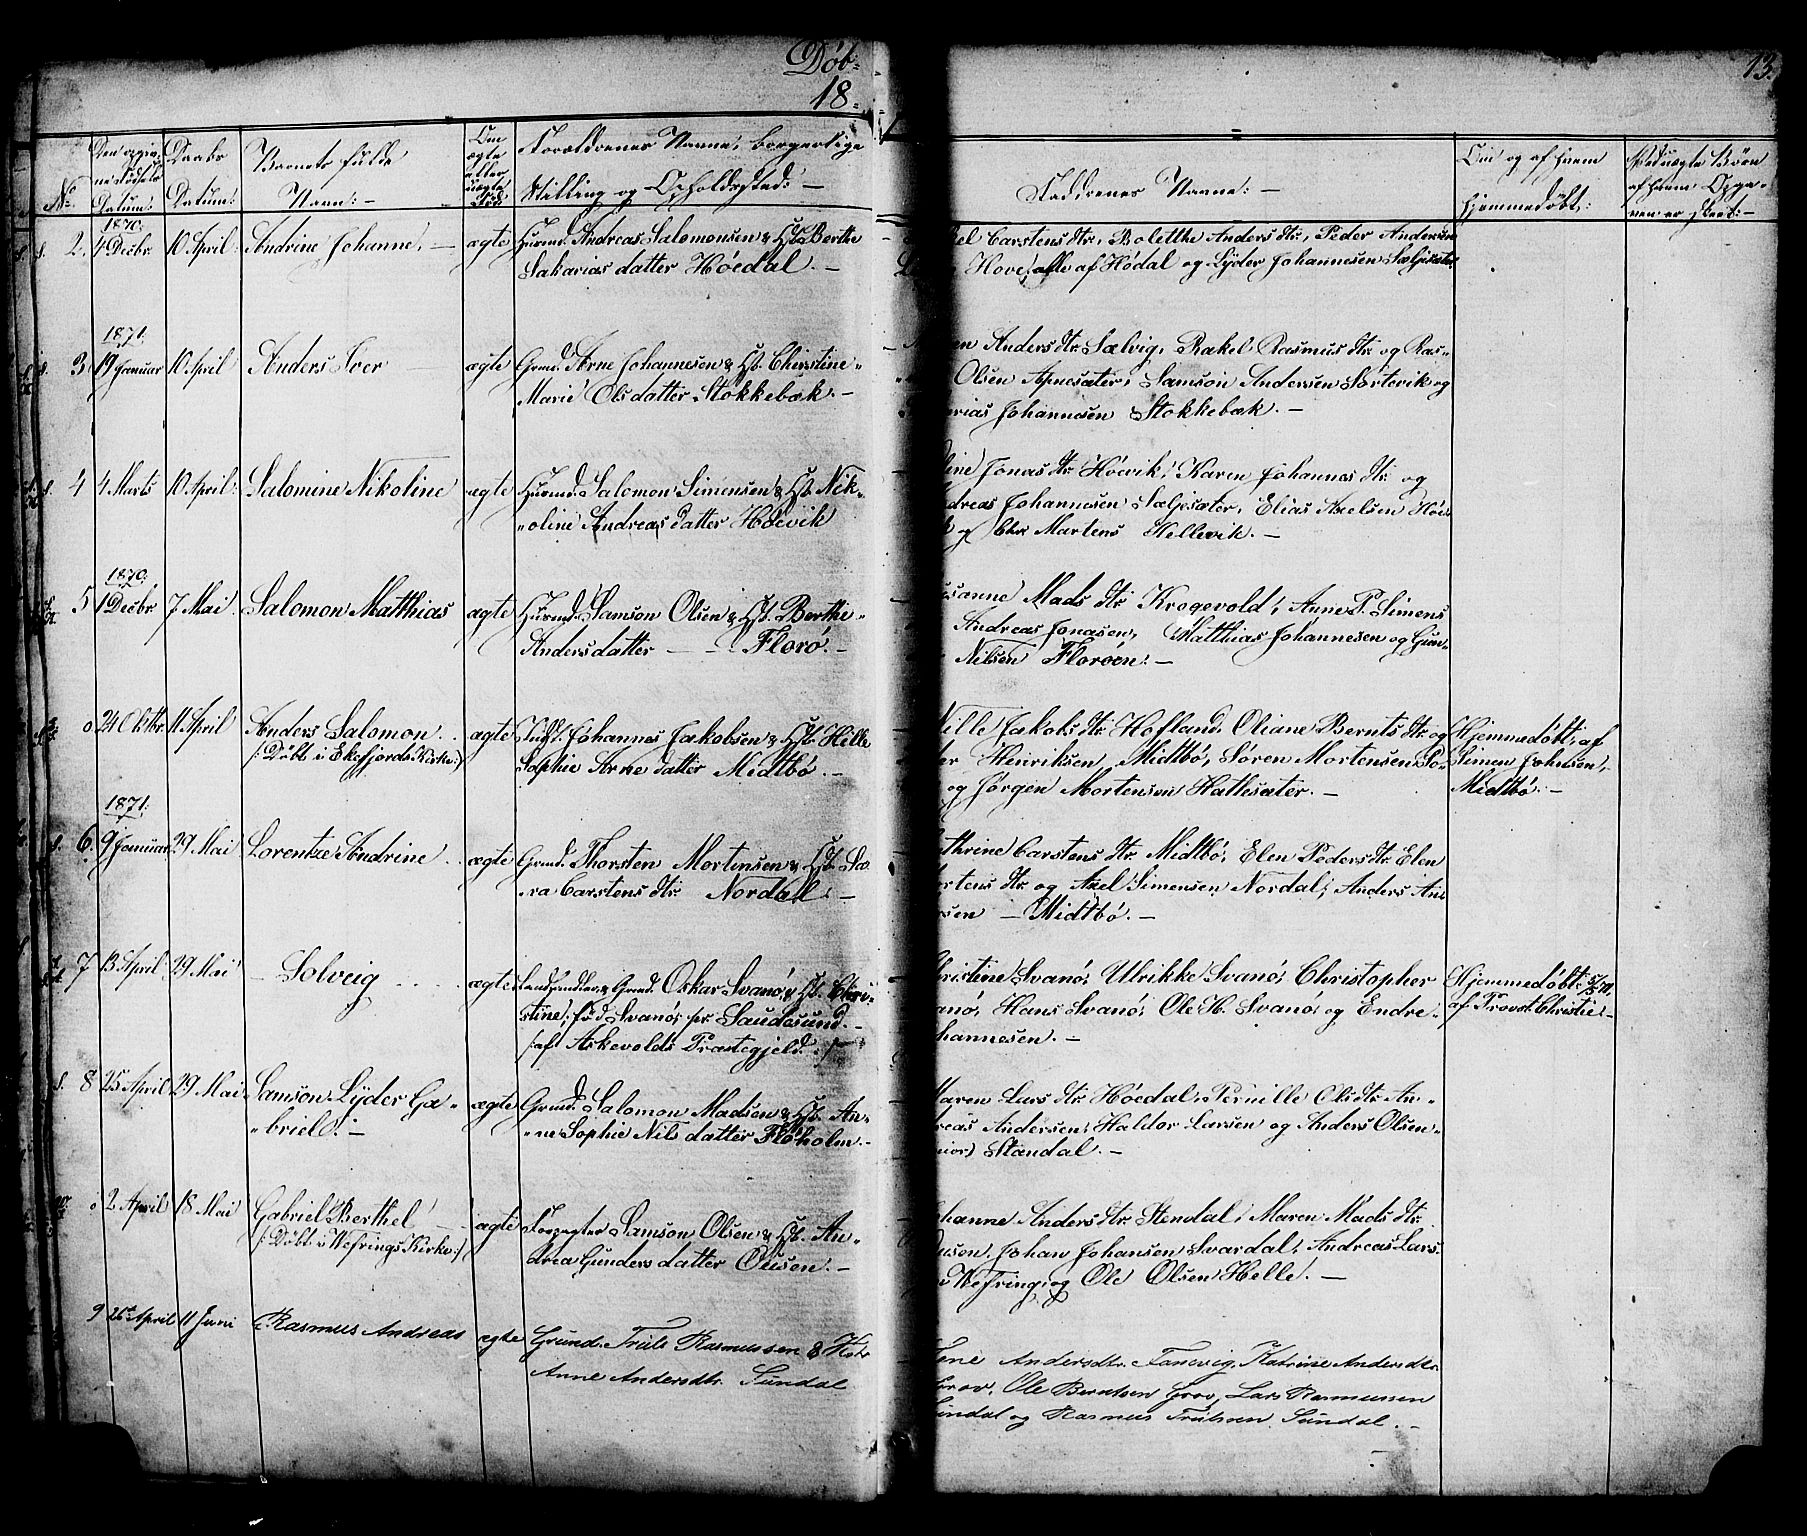 Døb-
18-
13.
No.
Den opgiv-
ne Fødsels
Datum:
Daabs
Datum:
Barnets fulde
Navn: -
Om
ægte
eller
uægte
Forældrenes Navne, borgerlige
Stilling og Opholdssted: -
Faddrenes Navne: -
Om og af hvem
hjemmedøbt:
1870.
2. 4 Decbr 10 April Andrine Johanne. - ægte Huusmd. Andreas Salomonsen & Hst. Berthe
Sakarias datter Høedal. -
Carstens dtr, Bolethe Anders dtr, Peder Andersen
Hove, alle af Hødal og Lyder Johannesen Sælgesæter
1871.
3 19 Januar 10 April Anders Iver - ægte Grmd. Arne Johannesen & Hst. Christine
Marie Olsdatter Stokkebæk. -
Anders dtr. Sælvig, Rakel Rasmus dtr. og Ras-
Olsen Apnesæter, Samson Andersen Sørtevik og
Johannesen Stokkebæk. -
4 4 Marts 10 April Salomine Nikoline ægte Huusmd. Salomon Simensen & Hst. Nik-
oline Andreas datter Høevik
Jonas dtr. Høevik, Karen Johannes dtr og
Johannesen Sælgesæter, Elias Axelsen Høe-
og Chr. Martens Hellevik. -
1870.
5 1 Decbr 7 Mai Salomon Matthias ægte Huusmd. Samson Olsen & Hst. Berthe
Andersdatter - - Florø. -
Mads dtr. Krogevold, Anne P. Simens
Andreas Jonasen, Matthias Johannesen og Gun-
Nilsen Florøen. -
24 Oktbr. 11 April Anders Salomon
/: Døbt i Ekefjords Kirke :/ ægte Johannes Jakobsen & Hst. Hille
Sophie Arne datter Midtbø. -
Jakobs dtr. Hofland, Oliane Bernts dtr. og
Henriksen Midtbø, Søren Mortensen
og Jørgen Mortensen Hatlesæter. -
Hjemmedøbt af
Simen Johnsen,
Midtbø. -
1871.
6. 9 Januar 29 Mai Lorentze Andrine ægte Grmd. Thorsten Mortensen & Hst. Sa-
ra Carstens dtr. Nordal. -
Carstens dtr. Midtbø, Elen Peders dtr. Elen
dtr. og Axel Simensen Nordal, Anders An-
- Midtbø. -
7 13 April 29 Mai - Solveig ægte Landhandler & Grmd. Oskar Svanø & Hst. Chri-
stine, fød Svanø, pr. Saudesund. -
/: af Askevolds Præstegjeld :/
Svanø, Ulrikke Svanø, Christopher
Hans Svanø, Ole H. Svanø, og Endre
Hjemmedøbt 5/5 71,
af Provst Christie. -
8 25 April 29 Mai Samson Lyder Ga-
briel. - ægte Grmd. Salomon Madsen & Hst. An-
ne Sophie Nils datter Floholm. -
Maren Lars dtr. Høedal, Pernille Olsdtr. An-
Andersen, Haldor Larsen og Anders Olsen
Standal. -
2 April 18 Mai Gabriel Berthel
/: Døbt i Vefrings Kirke :/ ægte Forpagter Samson Olsen & Hst. An-
drea Gunders datter Ousen. -
Anders dtr. Stendal, Maren Mads dtr.
Johan Johansen Svardal, Andreas Lars
Vefring, og Ole Olsen Helle. -
9 25 April 11 Juni Rasmus Andreas ægte Grund. Truls Rasmussen & Hstr
Anne Andersdtr. Sundal
Andersdtr. Tanevig, Katrine Andersdtr.
Grov, Ole Berntsen Grov, Lars Rasmussen
Sundal og Rasmus Trulsen Sundal. -